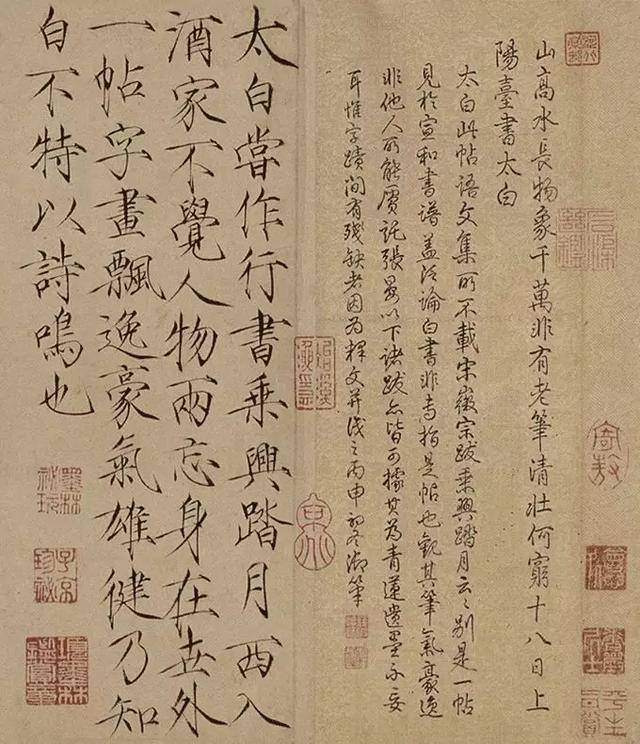 山高水長物象千萬非有老筆清壯何窮十八日上
陽臺書太白
太白此帖語文集所不載宋徽宗跋乘興踏月云〻別是一帖
見於宣和書譜蓋泛論白書非專指是帖也觀其筆氣豪逸
非他人所能贗託張晏以下諸跋亦皆可據其為青蓮遺墨不妄
耳惟字蹟間有殘缺者因為釋文并識之丙申初冬御筆
太白嘗作行書乘興踏月西入
酒家不覺人物兩忘身在世外
一帖字畫飄逸豪氣雄健乃知
白不特以詩鳴也
墨林祕玩
子京珍祕